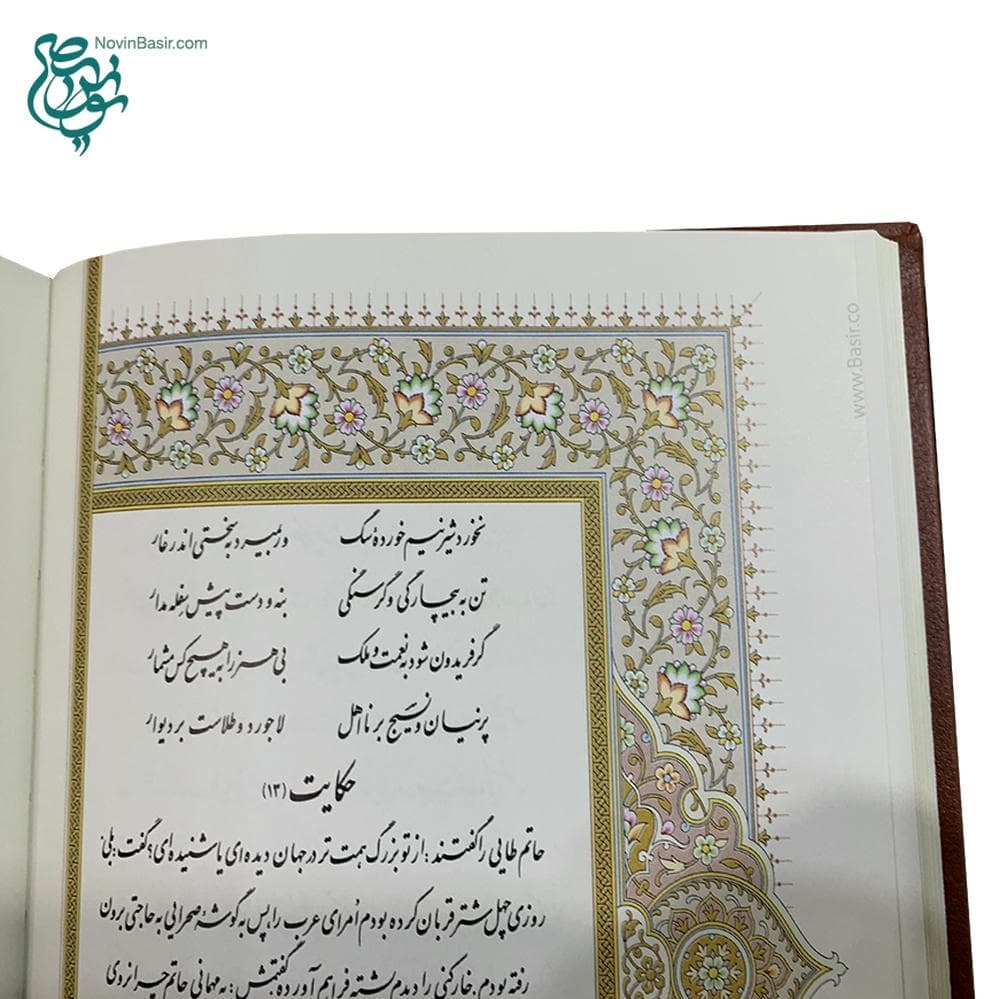 NovinBasir.com
نوین بصیر
www.Basir.co
نخورد شیر نیم خوردهٔ سگ ور بمیرد به سختی اندر غار
تن به بیچارگی و گرسنگی بنه و دست پیش سفله مدار
گر فریدون شود به نعمت و ملک بی هنر را به هیچ کس مشمار
پرنیان و نسیج بر نااهل لاجورد و طلاست بر دیوار
حکایت (۱۳)
حاتم طایی را گفتند: از تو بزرگ همت تر در جهان دیده ای یا شنیده ای؟ گفت: بلی.
روزی چهل شتر قربان کرده بودم اُمرای عرب را، پس به گوشهٔ صحرایی به حاجتی برون
رفته بودم. خارکنی را دیدم پشته فراهم آورده گفتمش: به مهمانی حاتم چرا نروی